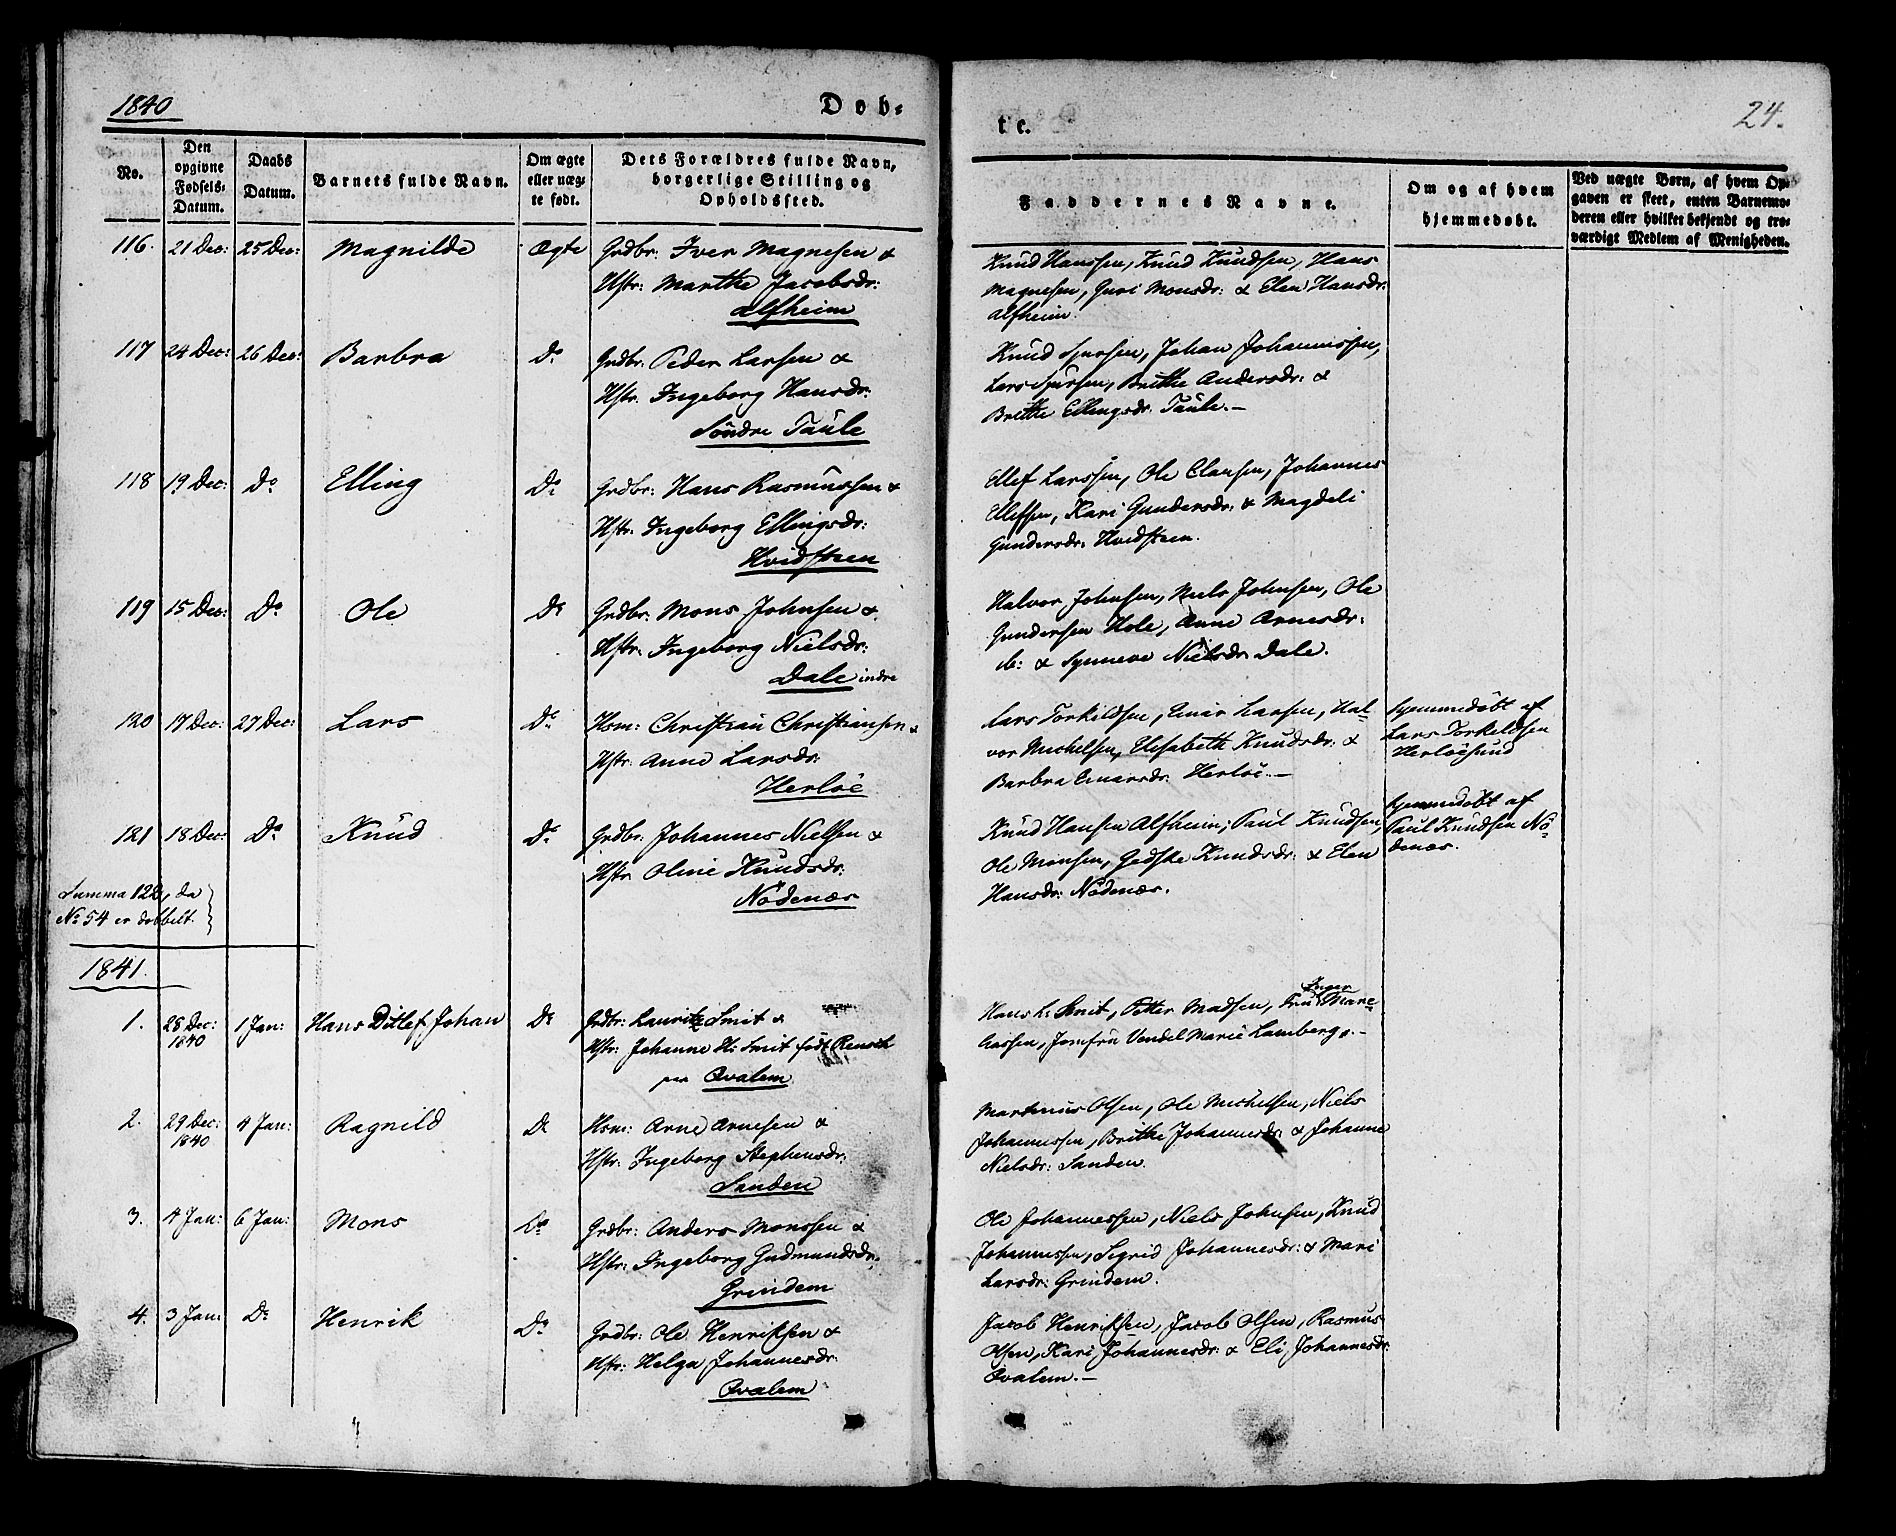 1840
Døb-
te.
24.
No.
Den
opgivne
Fødsels-
Datum.
Daabs
Datum.
Barnets fulde Navn.
Om ægte
eller uæg-
te født.
Dets Forældres fulde Navn,
borgerlige Stilling og
Opholdssted.
Faddernes Navne.
Om og af hvem
hjemmedøbt.
Ved uægte Børn, af hvem Op-
gaven er skeet, enten Barnemo-
deren eller hvilket bekjendt og tro-
værdigt Medlem af Menigheden.
116. 21 Dec: 25 Dec: Magnilde Ægte Grdbr: Iver Magnesen &
Hstr: Marthe Jacobsdr:
Alfheim
Knud Hanssen, Knud Knudsen, Hans
Magnesen, Guri Monsdr: & Elen Hansdr:
Alfheim.
117 24 Dec: 26 Dec: Barbra Do Grdbr: Peder Larsen &
Hstr: Ingeborg Hansdr:
Söndre Taule
Knud Sjursen, Johan Johannissen,
Lars Sjursen, Brithe Andersdr: &
Brithe Ellingsdr: Taule.—
118 19 Dec: Do Elling Do Grdbr: Hans Rasmussen &
Hstr: Ingeborg Ellingsdr:
Hvidsteen
Ellef Larssen, Ole Clausen, Johannes
Ellefsen, Kari Gundersdr: & Magdeli
Gundersdr: Hvidsteen.
119 15 Dec: Do Ole Do Grdbr: Mons Johnsen &
Hstr: Ingeborg Nielsdr:
Dale indre
Halvor Johnsen, Niels Johnsen, Ole
Gundersen Hole, Anne Arnesdr:
ib: & Synneve Nielsdr. Dale.
120 17 Dec: 27 Dec: Lars Do Hsm: Christian Christiansen &
Hstr: Anne Larsdr:
Herlöe
Lars Torkildsen, Einar Larsen, Hal-
vor Michelsen, Elisabeth Knudsdr: &
Barbra Einarsdr: Herlöe.—
Hjemmedöbt af
Lars Torkeldsen
Herlöesund
121 18 Dec: Do Knud Do Grdbr: Johannes Nielsen &
Hstr Oline Knudsdr:
Nödenæs
Knud Hansen Alfheim, Paul Knudsen,
Ole Monsen, Gedske Knudsdr: & Elen
Hansdr: Nödenæs.
Hjemmedöbt af
Paul Knudsen Nö-
denæs.
Summa 122, da
No 54 er dobbelt.
1841.
1. 28 Dec: 1840 1 Jan: Hans Ditlef Johan Do Grdbr: Lauritz Smit &
Hstr: Johanne H: Smit født Rensch
Qvalem
Hans L: Smit, Petter Madsen, Fru Inger Marie
Aassen, Jomfru Vendel Marie Lamberg.—
2. 29 Dec: 1840 4 Jan: Ragnild Do Hsm: Arne Arnesen &
Hstr: Ingeborg Stephensdr:
Sanden
Martinus Olsen, Ole Michelsen, Niels
Johannessen, Brithe Johannesdr: & Johanne
Nielsdr: Sanden.
3. 4 Jan: 6 Jan: Mons Do Grdbr: Anders Monssen &
Hstr: Ingeborg Gudmundsdr:
Grindem
Ole Johannessen, Niels Johnsen, Knud
Johannessen, Sigrid Johannesdr: & Mari
Larsdr: Grindem.
4. 3 Jan: Do Henrik Do Grdbr: Ole Henriksen &
Hstr: Helga Johannesdr:
Qvalem
Jacob Henriksen, Jacob Olsen, Rasmus
Olsen, Kari Johannesdr: & Eli Johannesdr:
Qvalem.—